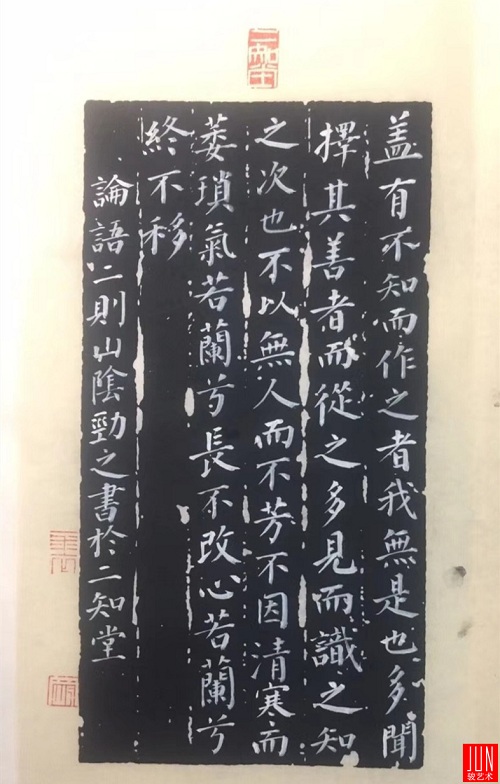 二知堂
盖有不知而作之者我無是也多聞
擇其善者而從之多見而識之知
之次也不以無人而不芳不因清寒而
萎瑣氣若蘭兮長不改心若蘭兮
終不移
論語二則山陰勁之書於二知堂
JUN
骏艺术